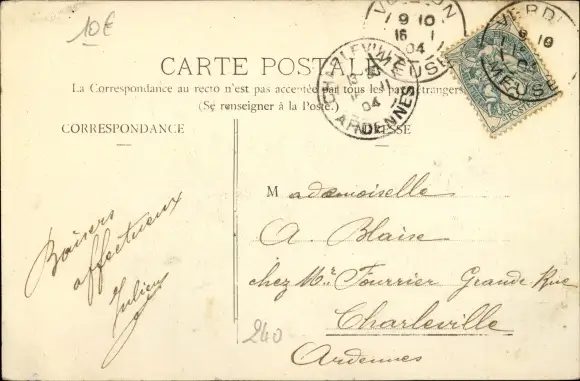 10€
VERDUN
9 10
16 1
04
MEUSE
VERDUN
9 10
MEUSE
CHARLEVILLE
04
ARDENNES
POSTES
CARTE POSTALE
La Correspondance au recto n'est pas acceptée par tous les pays étrangers
(Se renseigner à la Poste.)
CORRESPONDANCE
ADRESSE
Baisers
affectueux
Julien
Mademoiselle
A. Blaise
chez Mr. Fourrier Grande Rue
Charleville
Ardennes
240